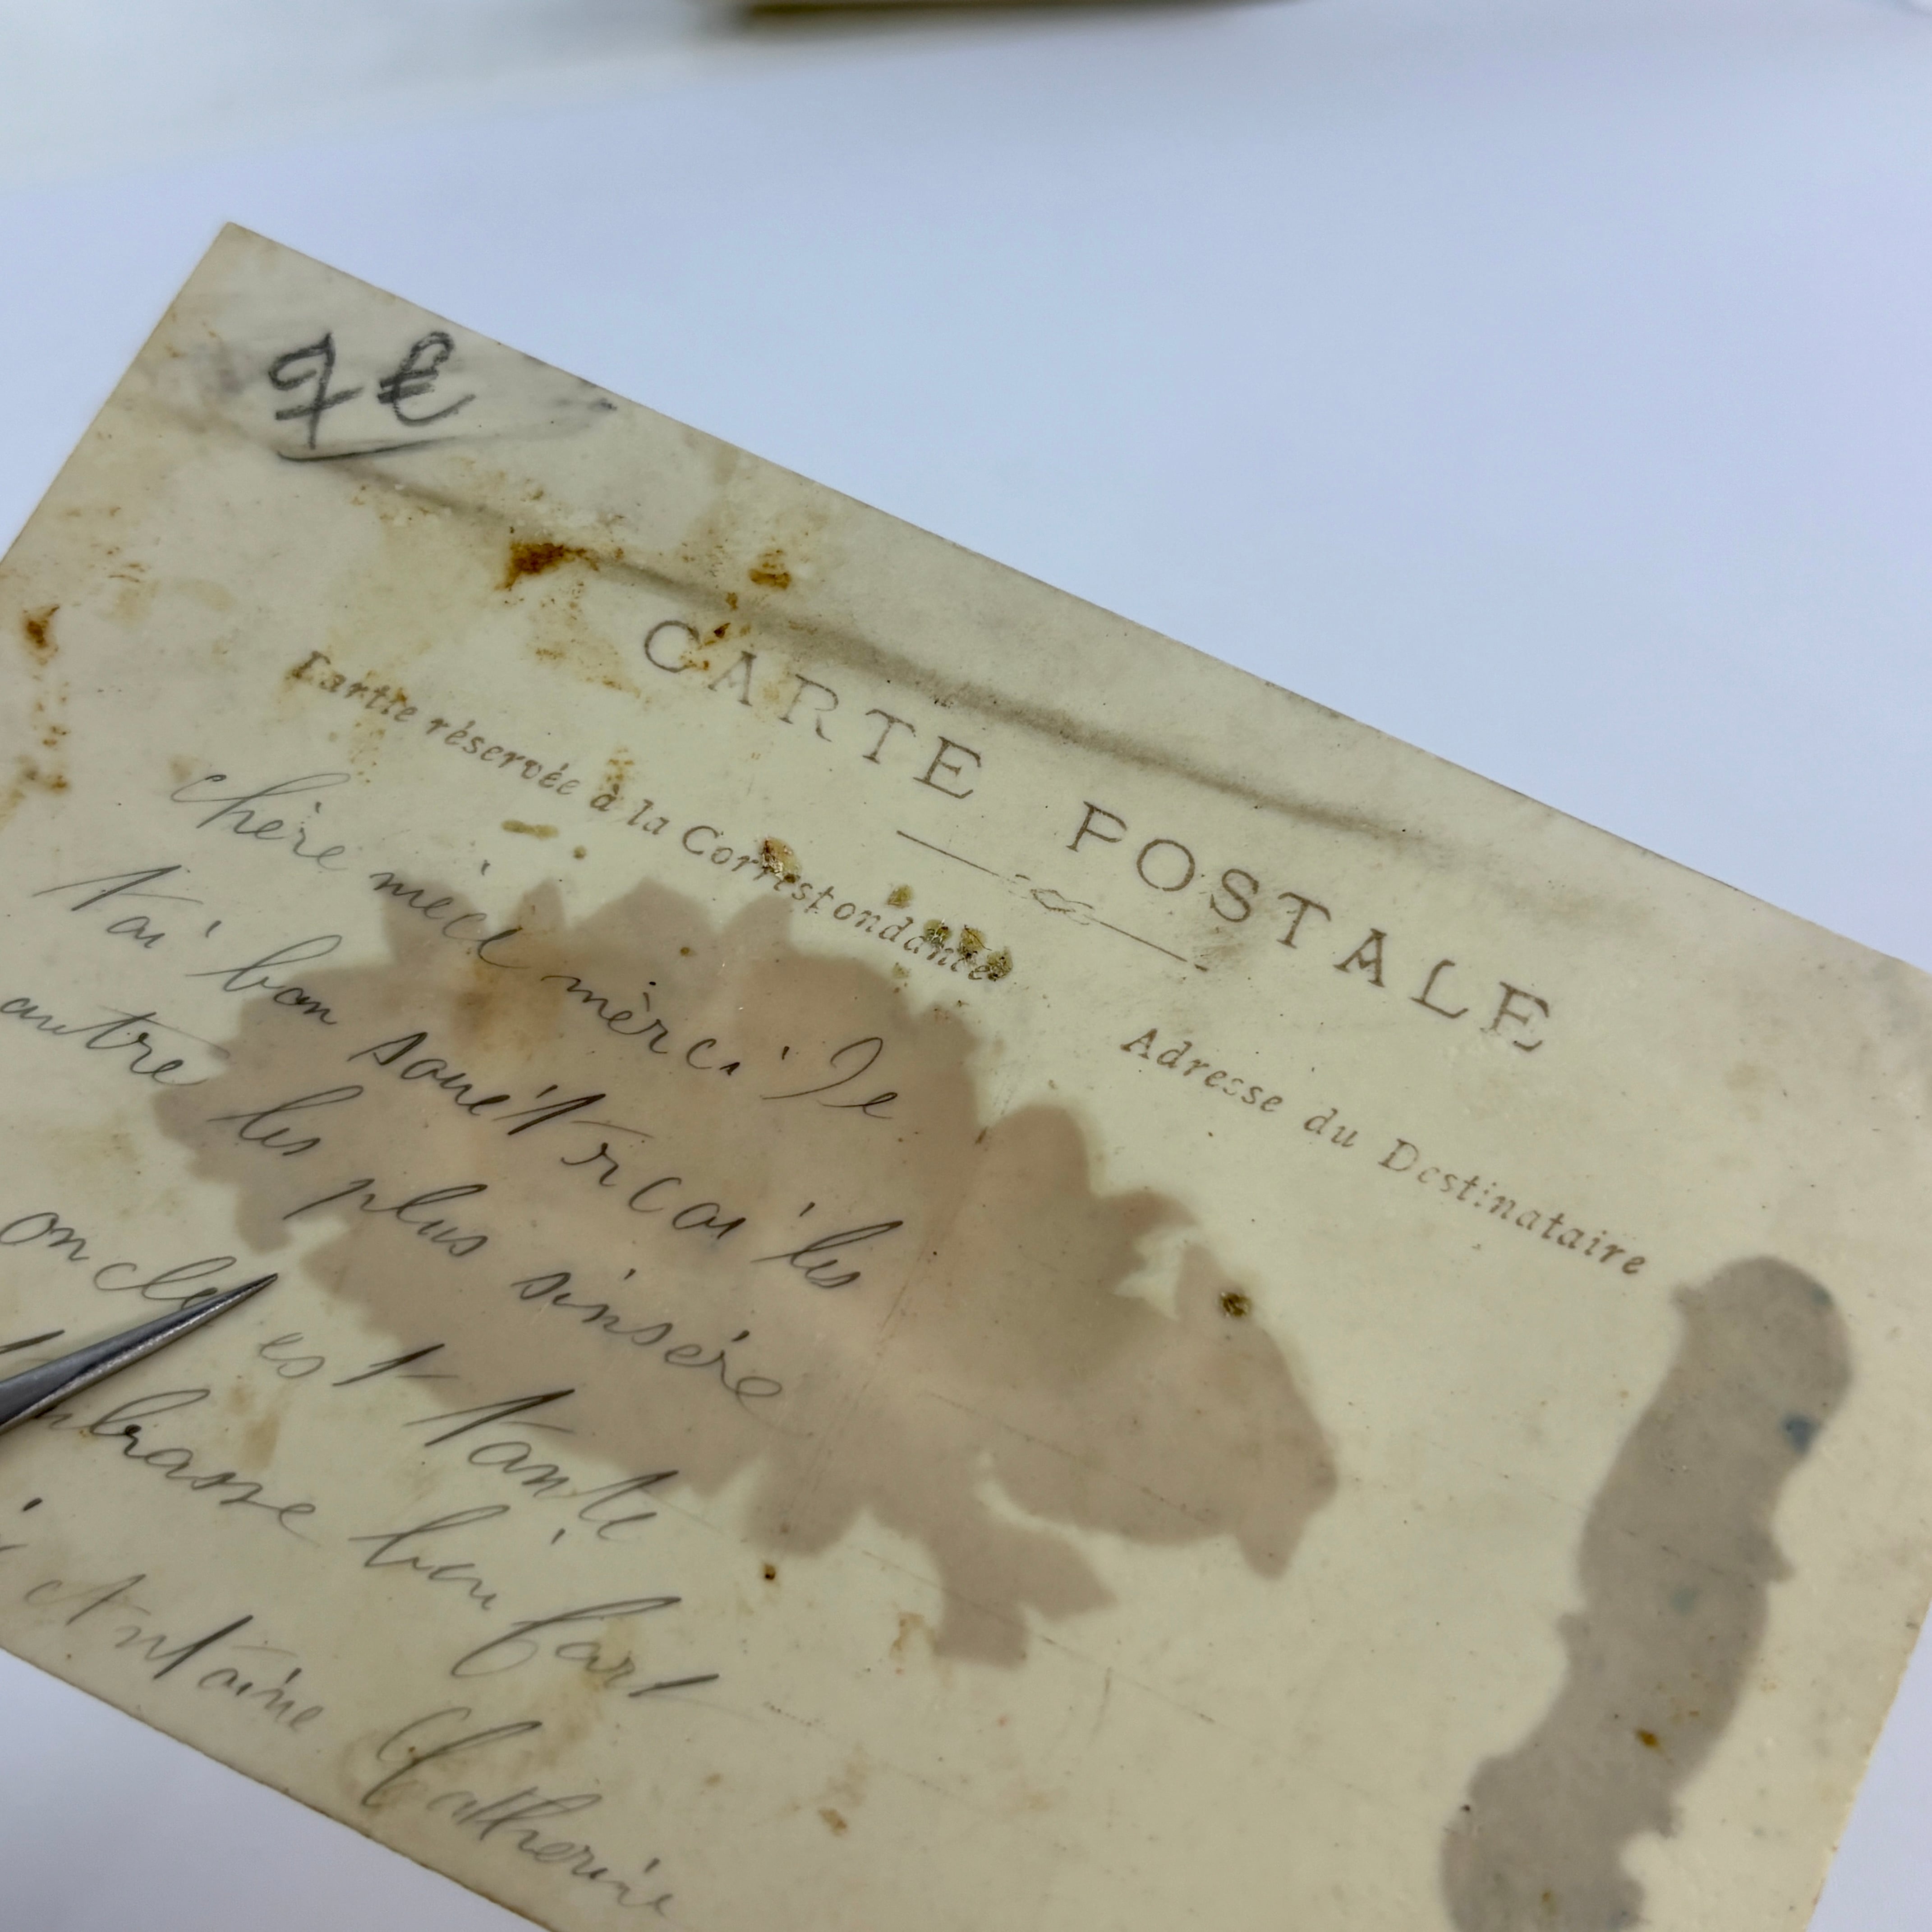 9 €
CARTE POSTALE
Partie réservée à la Correspondance
Adresse du Destinataire
chère mèce mèrci Je
bon les
autre les plus sinsére
oncle est tante
bien fort
Antoine Catherine